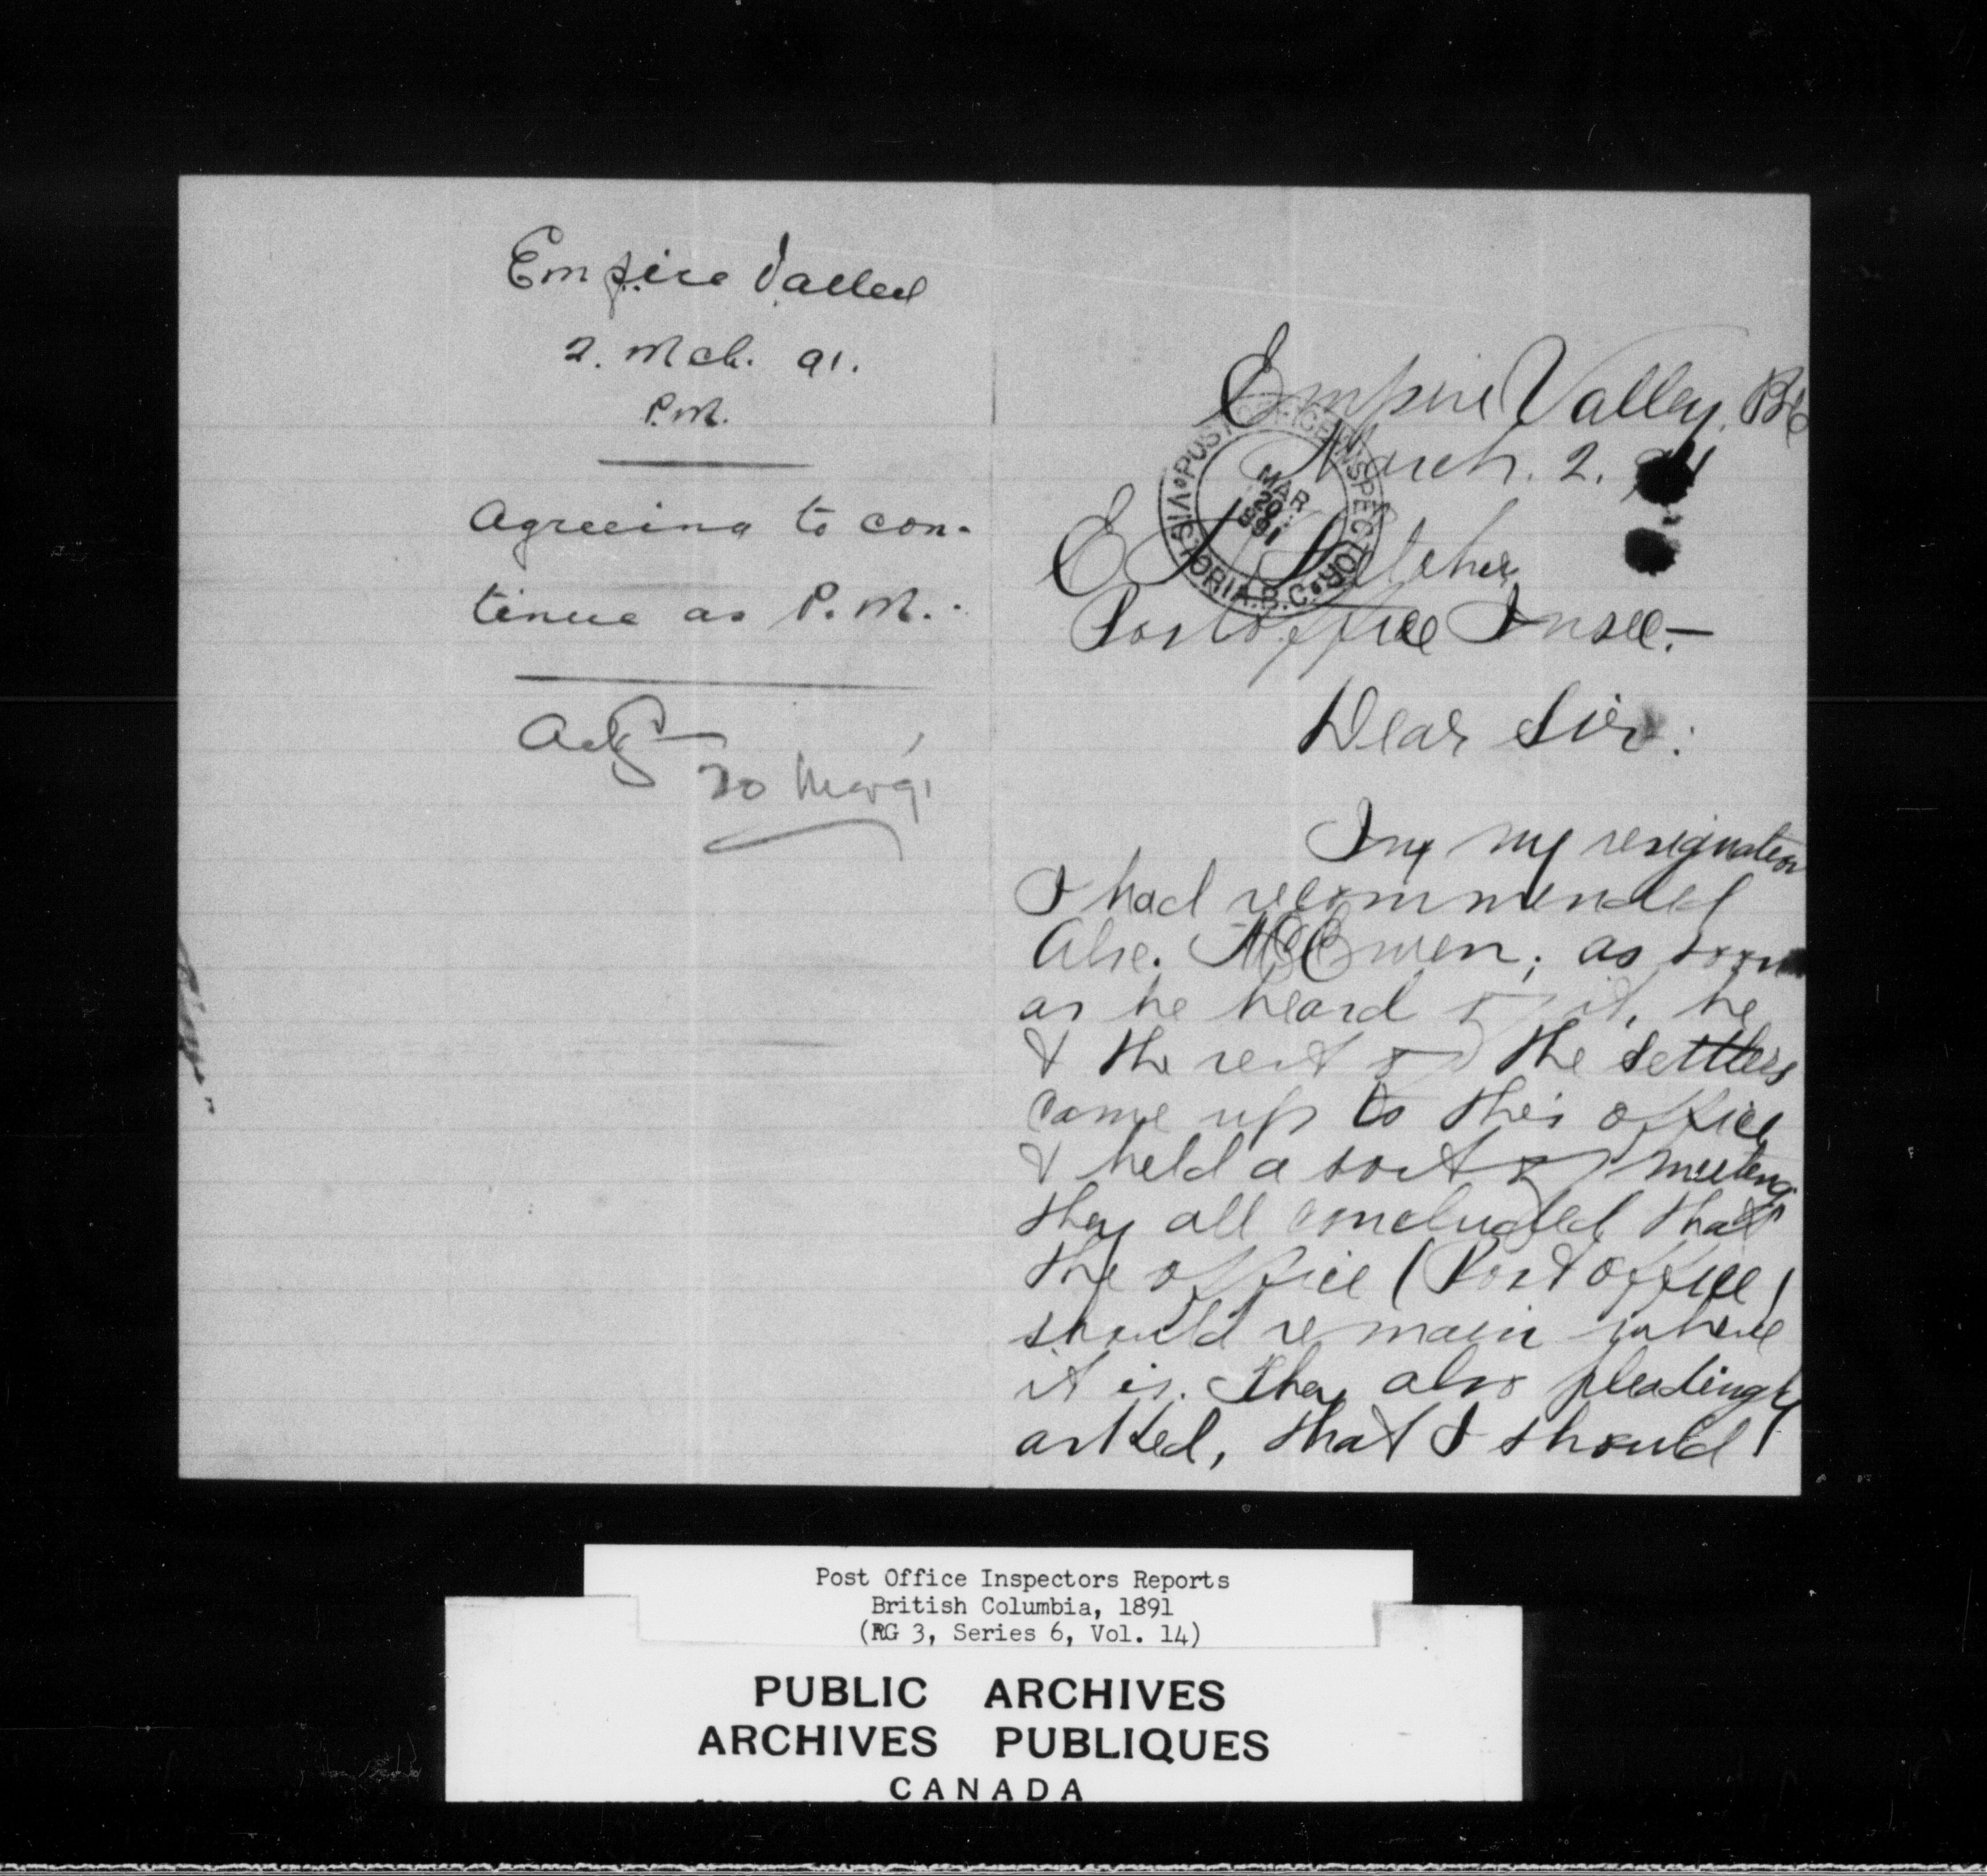 Empire Valley
2. Mch. 91.
P.M.
Agreeing to con-
tinue as P.M.
20 Mar 91
Empire Valley, BC
March. 2. 91
POST OFFICE INSPECTOR
VICTORIA. B.C.
MAR
20
1891
E H Fletcher
Post office Insee.
Dear Sir:
In my resignation
I had recommended
Alic. McEwen; as soon
as he heard of it, he
& the rest of the settlers
came up to this office
& held a sort of meeting
they all concluded that
the office (Post office)
should remain where
it is. They also pleadingly
asked, that I should
Post Office Inspectors Reports
British Columbia, 1891
(RG 3, Series 6, Vol. 14)
PUBLIC ARCHIVES
ARCHIVES PUBLIQUES
CANADA